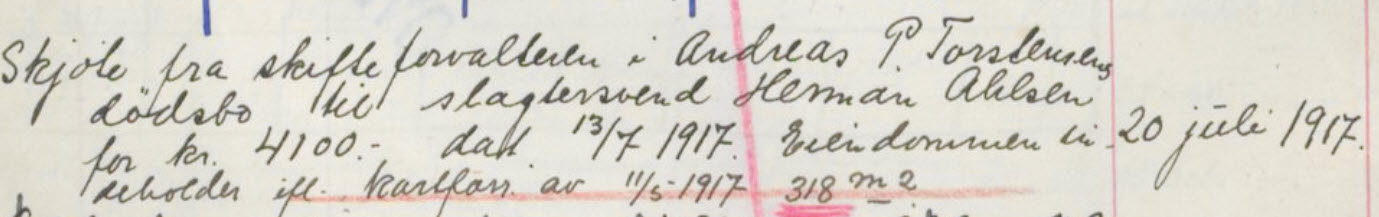 Skjöte fra skifteforvalteren i Andreas P. Torstensens
dödsbo til slagtersvend Herman Ahlsen
for kr. 4100.- dat. 13/7 1917. Eiendommen in- 20 juli 1917.
deholder ifl. kartforr. av 11/5-1917 318 m2